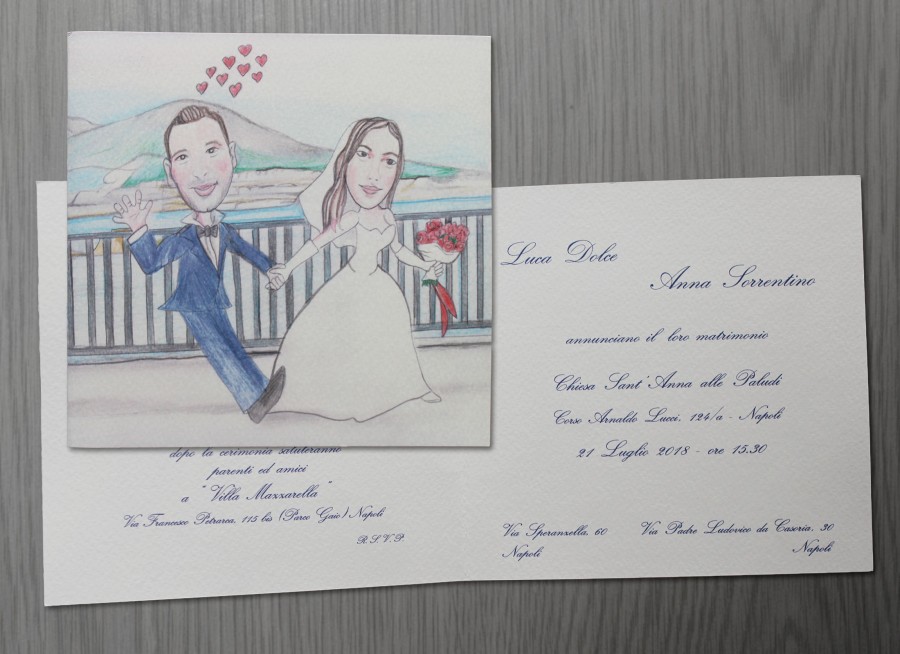 Luca Dolce
Anna Sorrentino
annunciano il loro matrimonio
Chiesa Sant'Anna alle Paludi
Corso Arnaldo Lucci, 124/a - Napoli
21 Luglio 2018 - ore 15.30
Via Speranzella, 60
Napoli
Via Padre Ludovico da Casoria, 30
Napoli
dopo la cerimonia saluteranno
parenti ed amici
a "Villa Mazzarella"
Via Francesco Petrarca, 115 bis (Parco Gaio) Napoli
R.S.V.P.